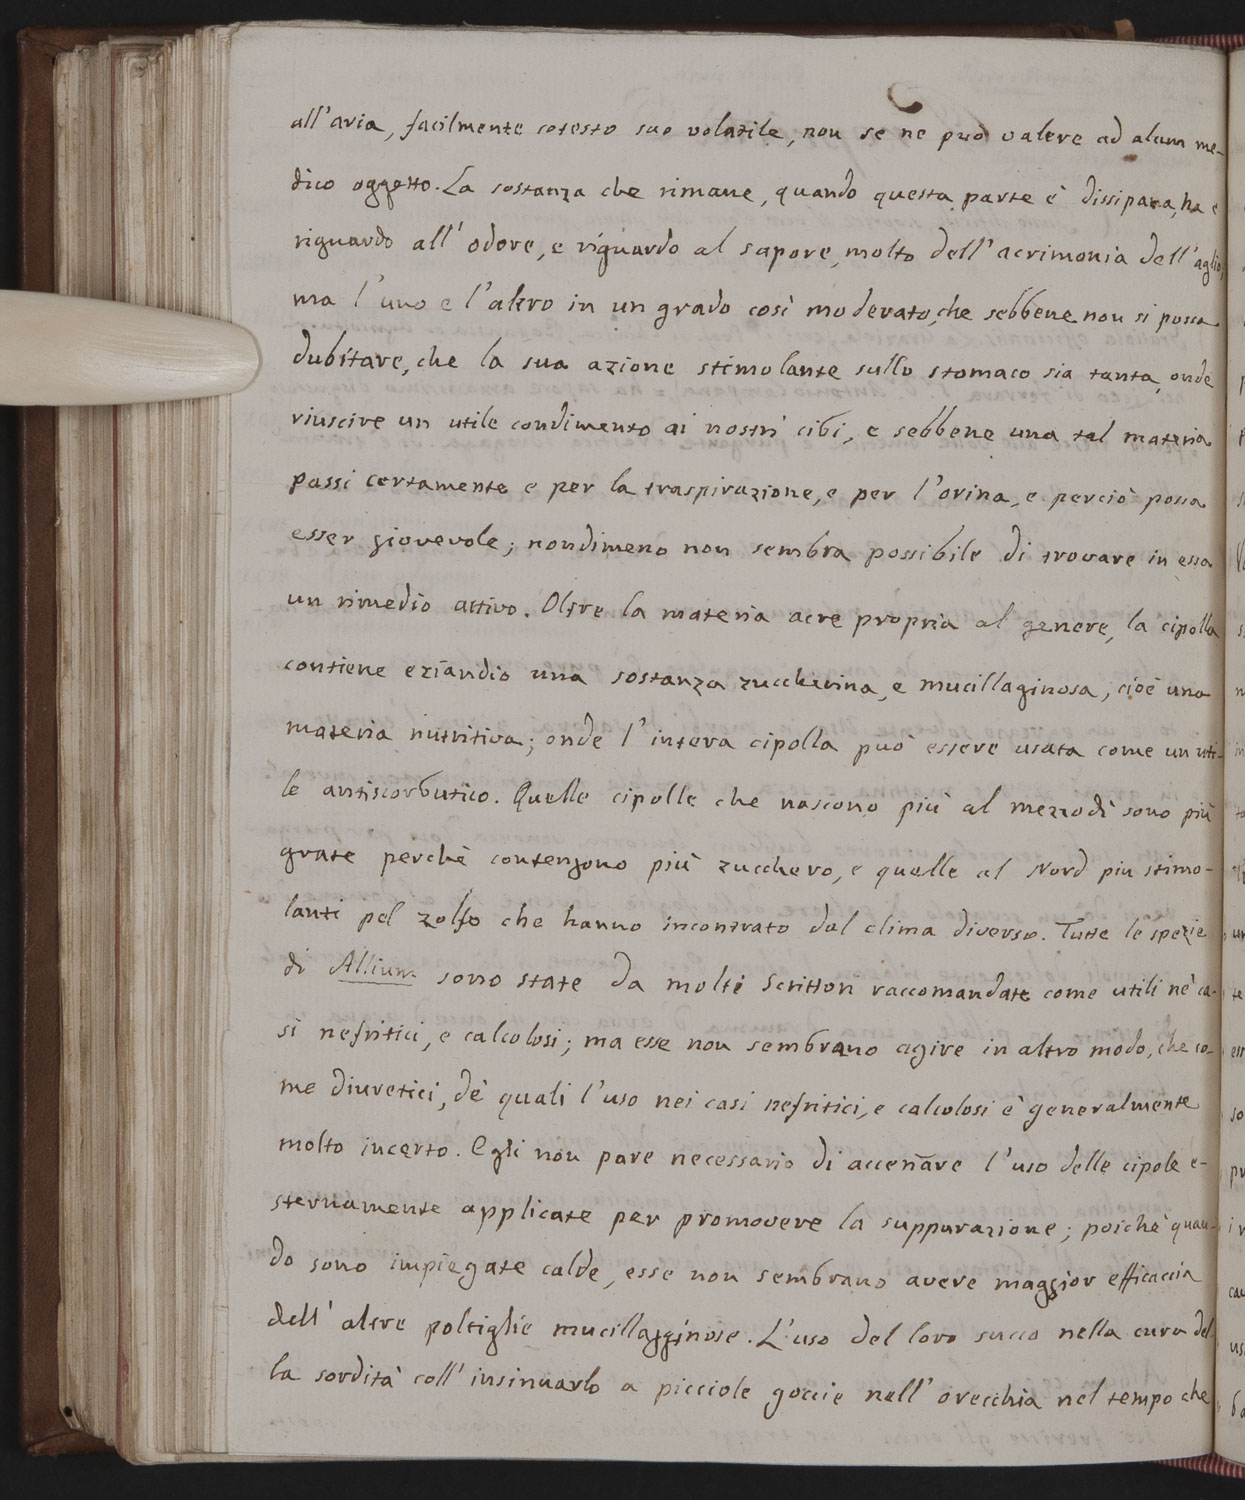 all'aria, facilmente cotesto suo volatile, non se ne può valere ad alcun me-
dico oggetto. La sostanza che rimane, quando questa parte è dissipata, ha e
riguardo all'odore, e riguardo al sapore, molto dell'acrimonia dell'aglio,
ma l'uno e l'altro in un grado così moderato, che sebbene non si possa
dubitare, che la sua azione stimolante sullo stomaco sia tanta, onde
riuscire un utile condimento ai nostri cibi, e sebbene una tal materia
passi certamente e per la traspirazione, e per l'orina, e perciò possa
esser giovevole; nondimeno non sembra possibile di trovare in essa
un rimedio attivo. Oltre la materia acre propria al genere, la cipolla
contiene eziandio una sostanza zuccherina, e mucillaginosa, cioè una
materia nutritiva; onde l'intera cipolla può essere usata come un uti-
le antiscorbutico. Quelle cipolle che nascono più al mezzodì sono più
grate perchè contengono più zucchero, e quelle al Nord più stimo-
lanti pel zolfo che hanno incontrato dal clima diverso. Tutte le spezie
di Allium sono state da molti scrittori raccomandate come utili ne' ca-
si nefritici, e calcolosi; ma esse non sembrano agire in altro modo, che co-
me diuretici, de' quali l'uso nei casi nefritici, e calcolosi è generalmente
molto incerto. Egli non pare necessario di accenare l'uso delle cipole e-
sternamente applicate per promovere la suppurazione; poichè quan-
do sono impiegate calde, esse non sembrano avere maggior efficaccia
dell'altre poltiglie mucillagginose. L'uso del loro succo nella cura del-
la sordità coll'insinuarlo a picciole goccie nell'orecchia nel tempo che